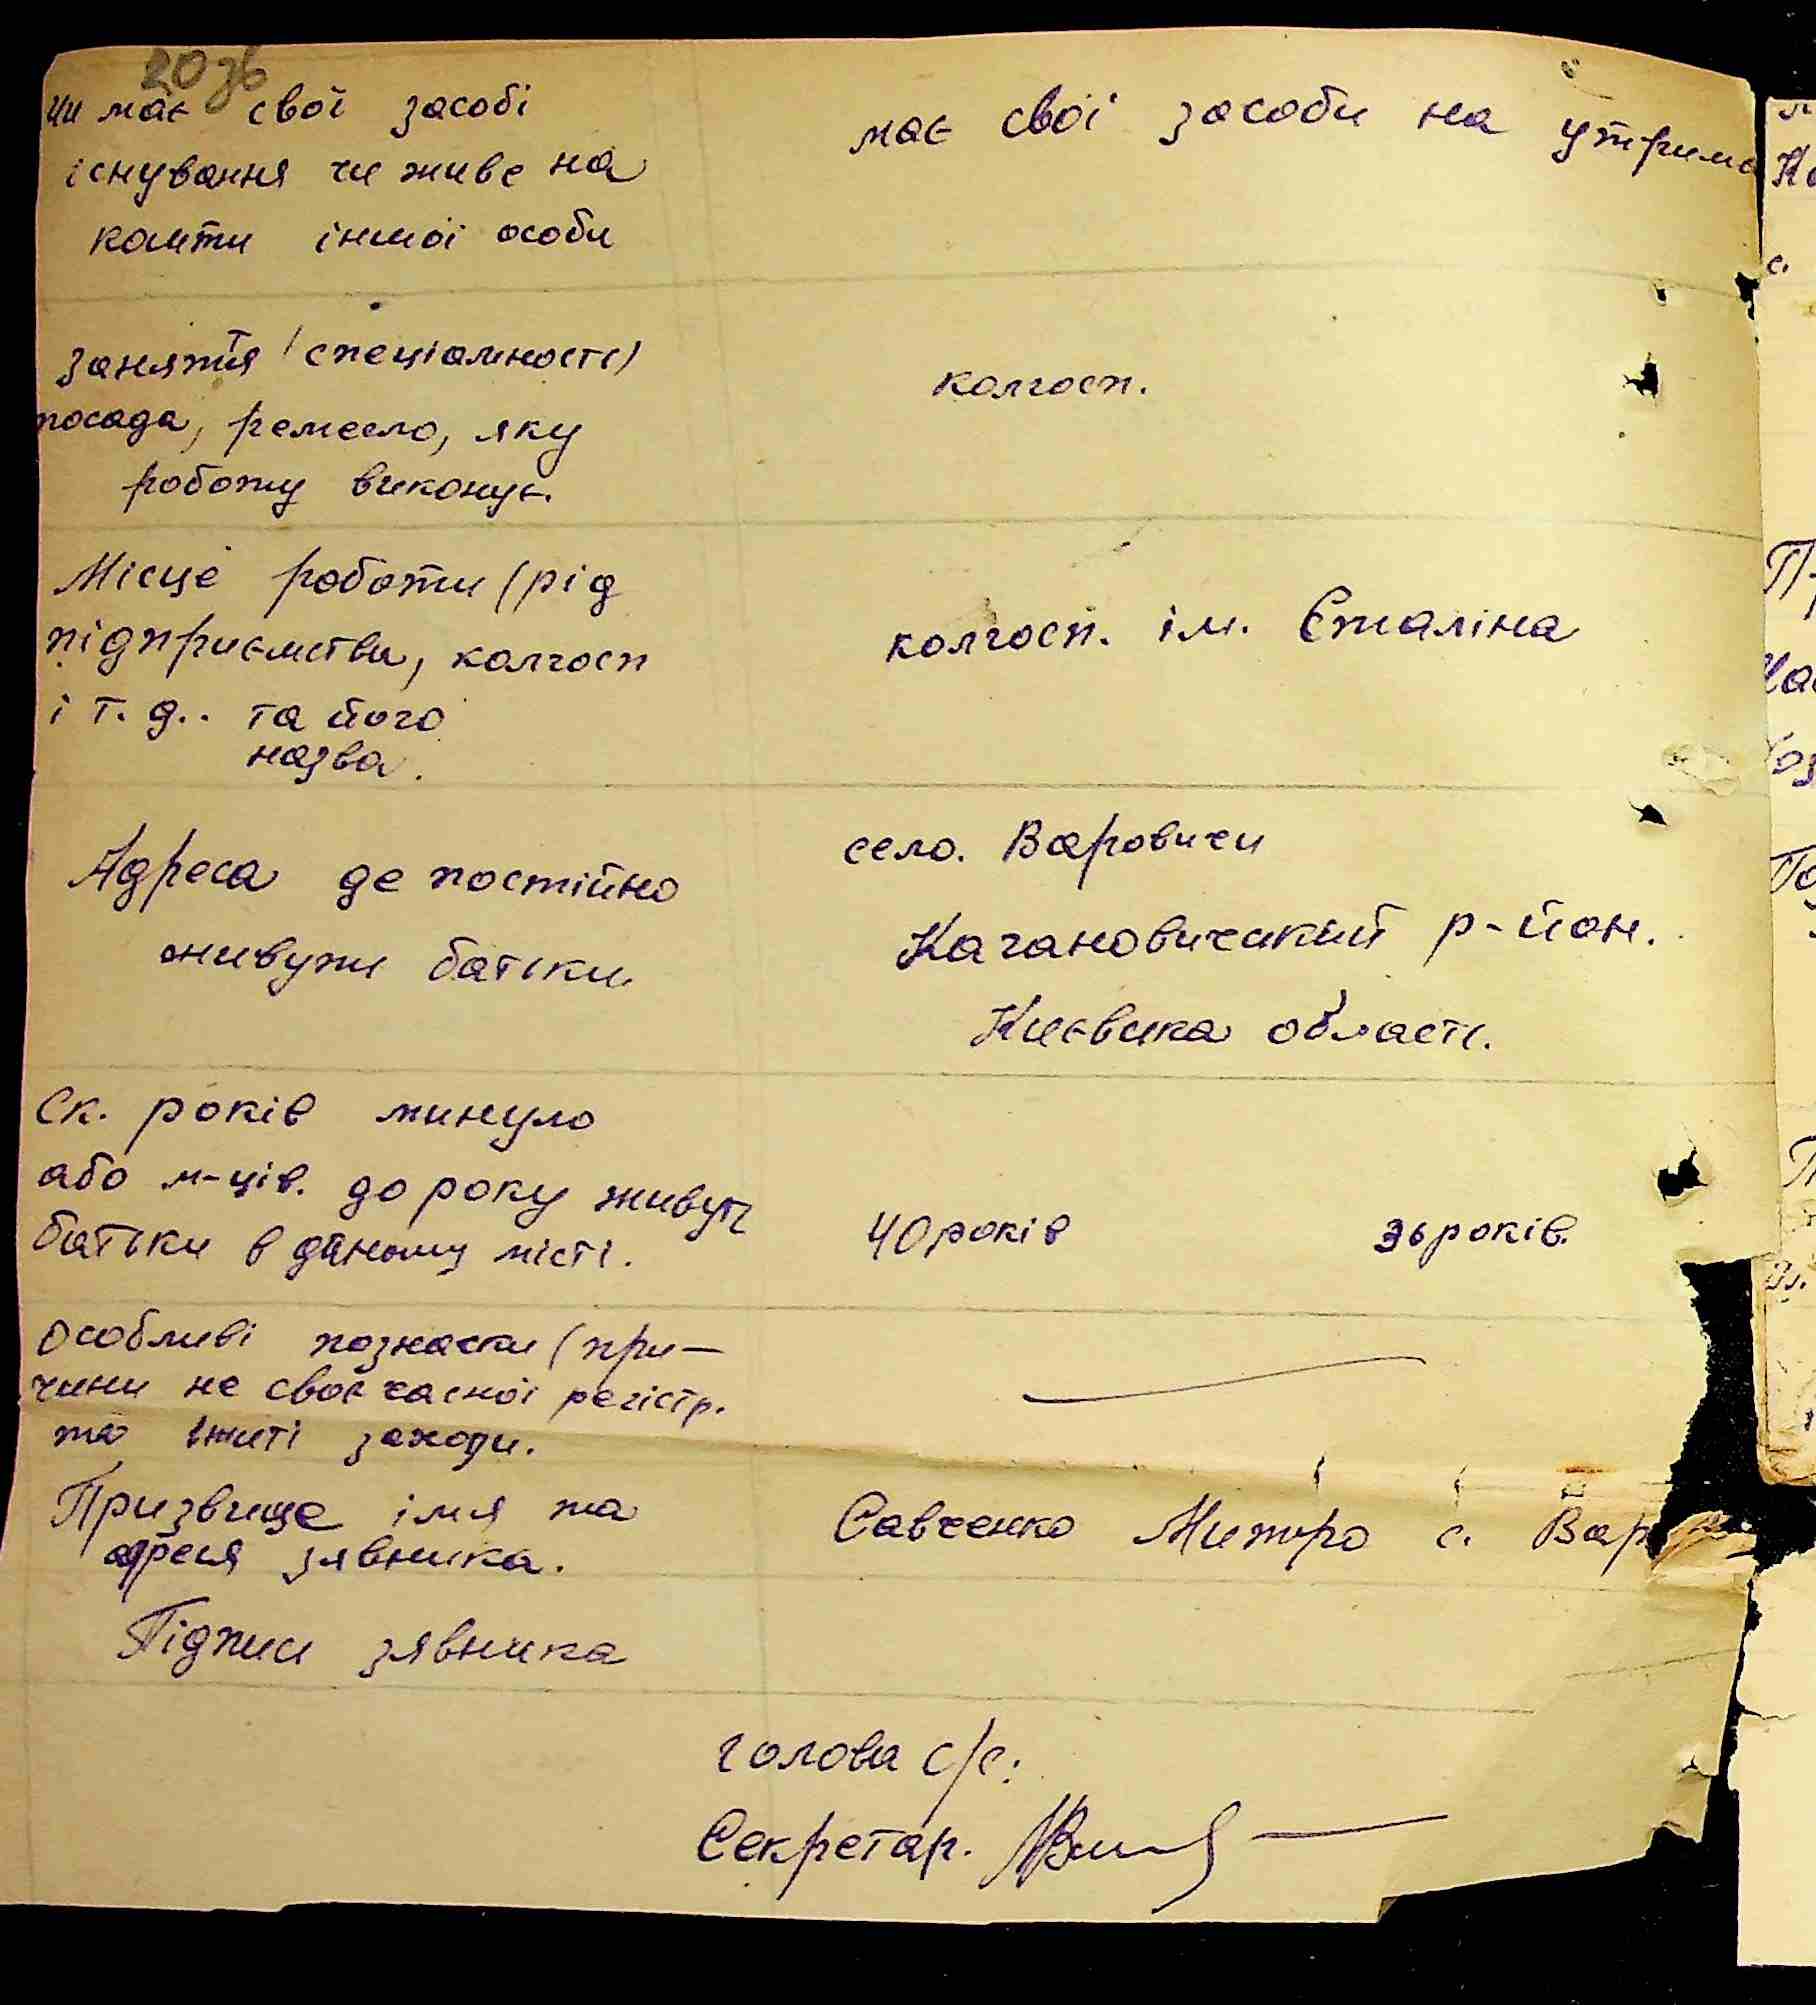 20зв
чи має свої засобі
існування чи живе на
кошти іншої особи
має свої засоби на утрима
заняття (спеціальність)
посада, ремесло, яку
роботу виконує.
колгосп.
Місце роботи (рід
підприємства, колгосп
і т. д.. та його
назва.
колгосп. ім. Сталіна
Адреса де постійно
живуть батьки
село. Варовичи
Кагановичський р-йон.
Києвська області.
Ск. років минуло
або м-ців. до року живуть
батьки в даному місті.
40 років 36 років.
Особливі познаски (при-
чини не своєчасної регістр.
та вжиті заходи.
Призвище імя та
адреся зявника.
Савченко Митро с. Вар
Підписи зявника
голова с/с:
Секретар.